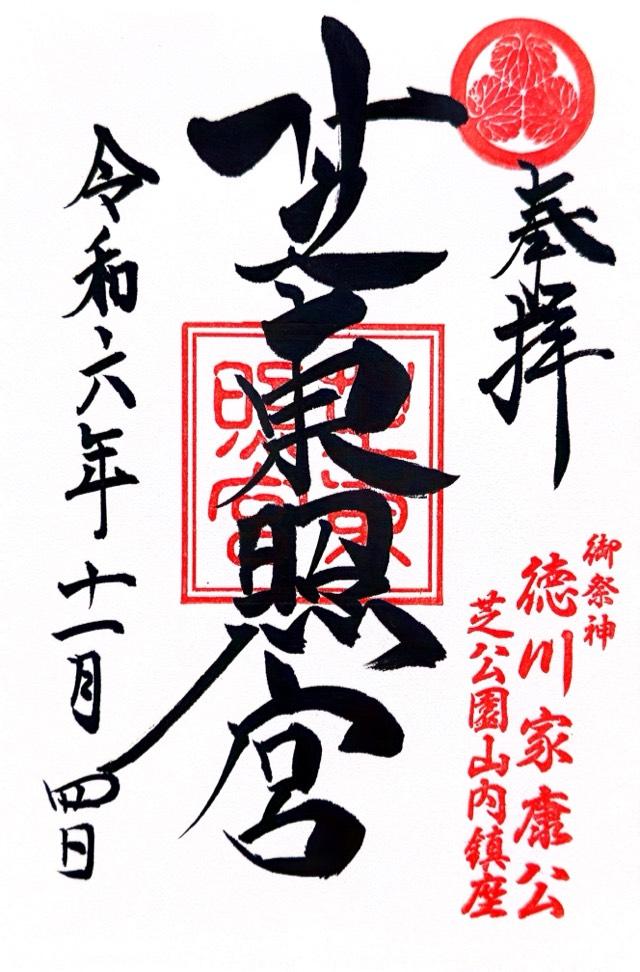 奉拝
御祭神
徳川家康公
芝公園山内鎮座
芝東照宮
芝東照宮
令和六年十一月四日